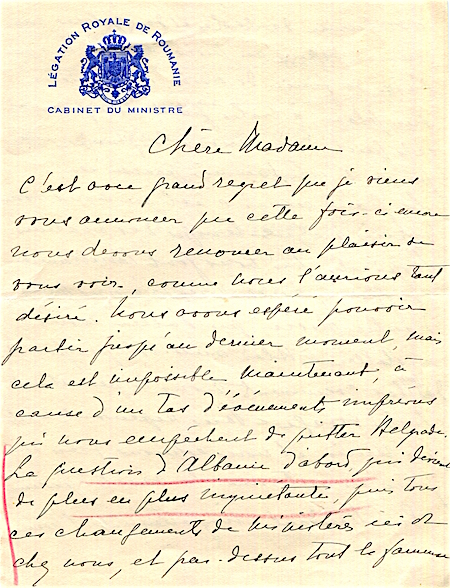 LÉGATION ROYALE DE ROUMANIE
CABINET DU MINISTRE
Chère Madame
C'est avec grand regret que je viens
vous annoncer que cette fois-ci encore
nous devons renoncer au plaisir de
vous voir, comme nous l'aurions tant
désiré. Nous avons espéré pouvoir
partir jusqu'au dernier moment, mais
cela est impossible maintenant, à
cause d'un tas d'événements imprévus
qui nous empêchent de quitter Belgrade.
La question d'Albanie d'abord qui devient
de plus en plus inquiétante, puis tous
ces changements de ministères ici et
chez nous, et par-dessus tout le fameux